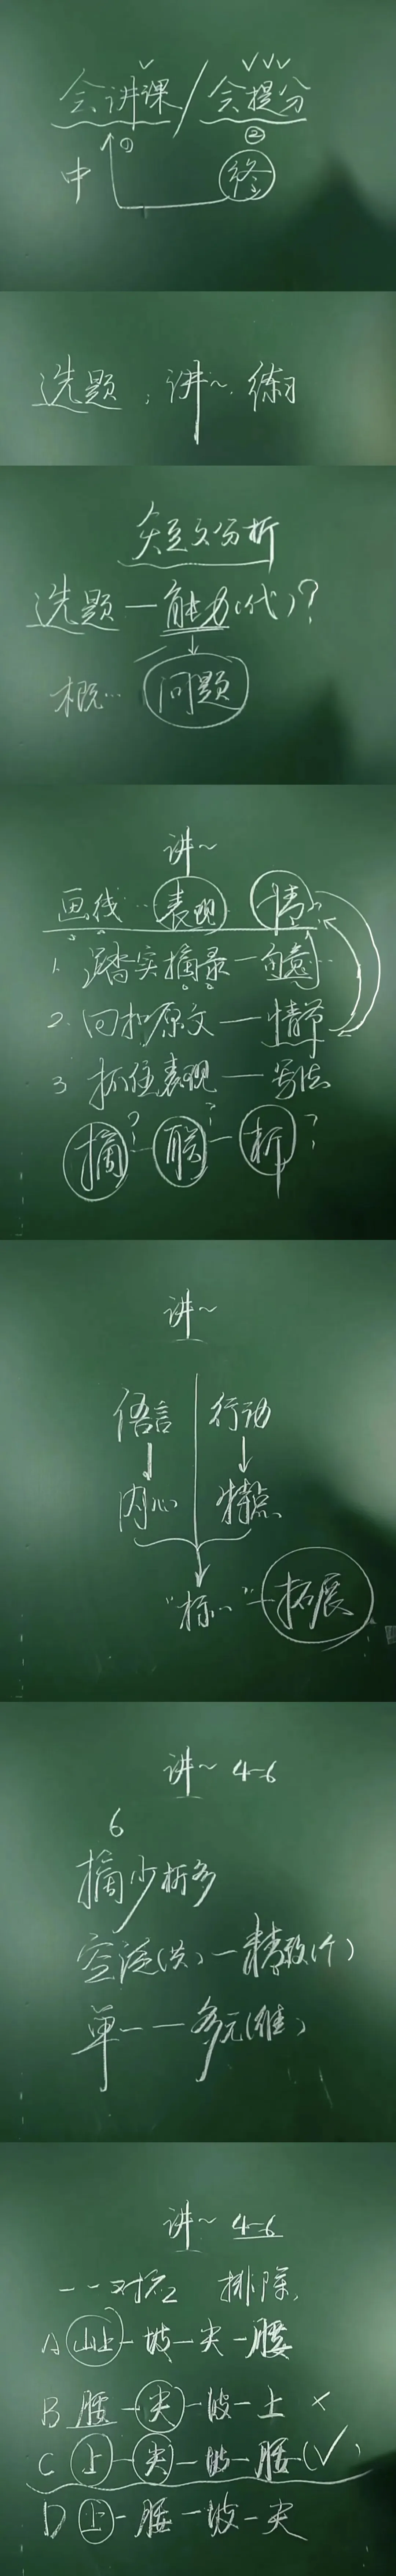 会讲课/会提分
①
②
中
终
选题;讲~.练习
关豆文分析
选题—能力(代)?
↓
概… 问题
讲~
画线… 表现 情
1. 踏实摘录—句意
2. 回扣原文—情节
3 抓住表现—写法
摘—联—析
讲~
语言 行动
内心 特点
"标…"—拓展
讲~ 4-6
6
摘少析多
空泛(共)—精致(个)
单一—多元(维)
讲~ 4-6
一一对应 排除
A 山上—坡—尖—腰
B 腰—尖—坡—上 ×
C 上—尖—坡—腰(√)
D 上—腰—坡—尖